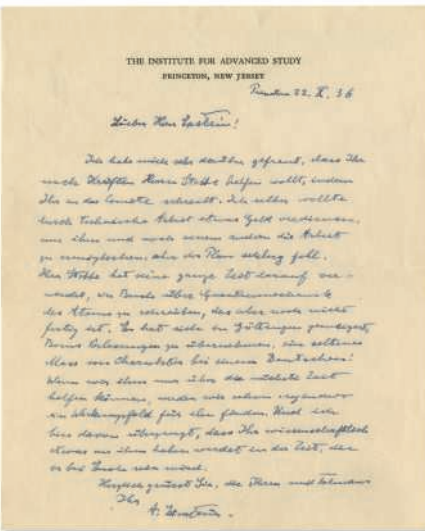 THE INSTITUTE FOR ADVANCED STUDY
PRINCETON, NEW JERSEY
Princeton 22. X. 36
Lieber Herr Epstein!
Ich habe mich sehr darüber gefreut, dass Ihr
nach Kräften Herrn helfen wollt, indem
Ihr an das schreibt. Ich selber wollte
durch technische Arbeit etwas Geld verdienen,
um ihm und noch einem andern die Arbeit
zu ermöglichen, aber der Plan schlug fehl.
Herr hat seine ganze Zeit darauf ver-
wendet, ein Buch über Quantenmechanik
des Atoms zu schreiben, das aber noch nicht
fertig ist. Er hat sich in Göttingen geweigert,
Borns Vorlesungen zu übernehmen, ein seltenes
Mass von Charakter bei einem Deutschen!
Wenn wir ihm nur über die nächste Zeit
helfen können, werden wir schon irgendwo
ein Wirkungsfeld für ihn finden. Auch ich
bin davon überzeugt, dass Ihr wissenschaftlich
etwas an ihm haben werdet in der Zeit, da
er bei Euch sein wird.
Herzlich grüsst Sie, die Ihren und
Ihr
A. Einstein.